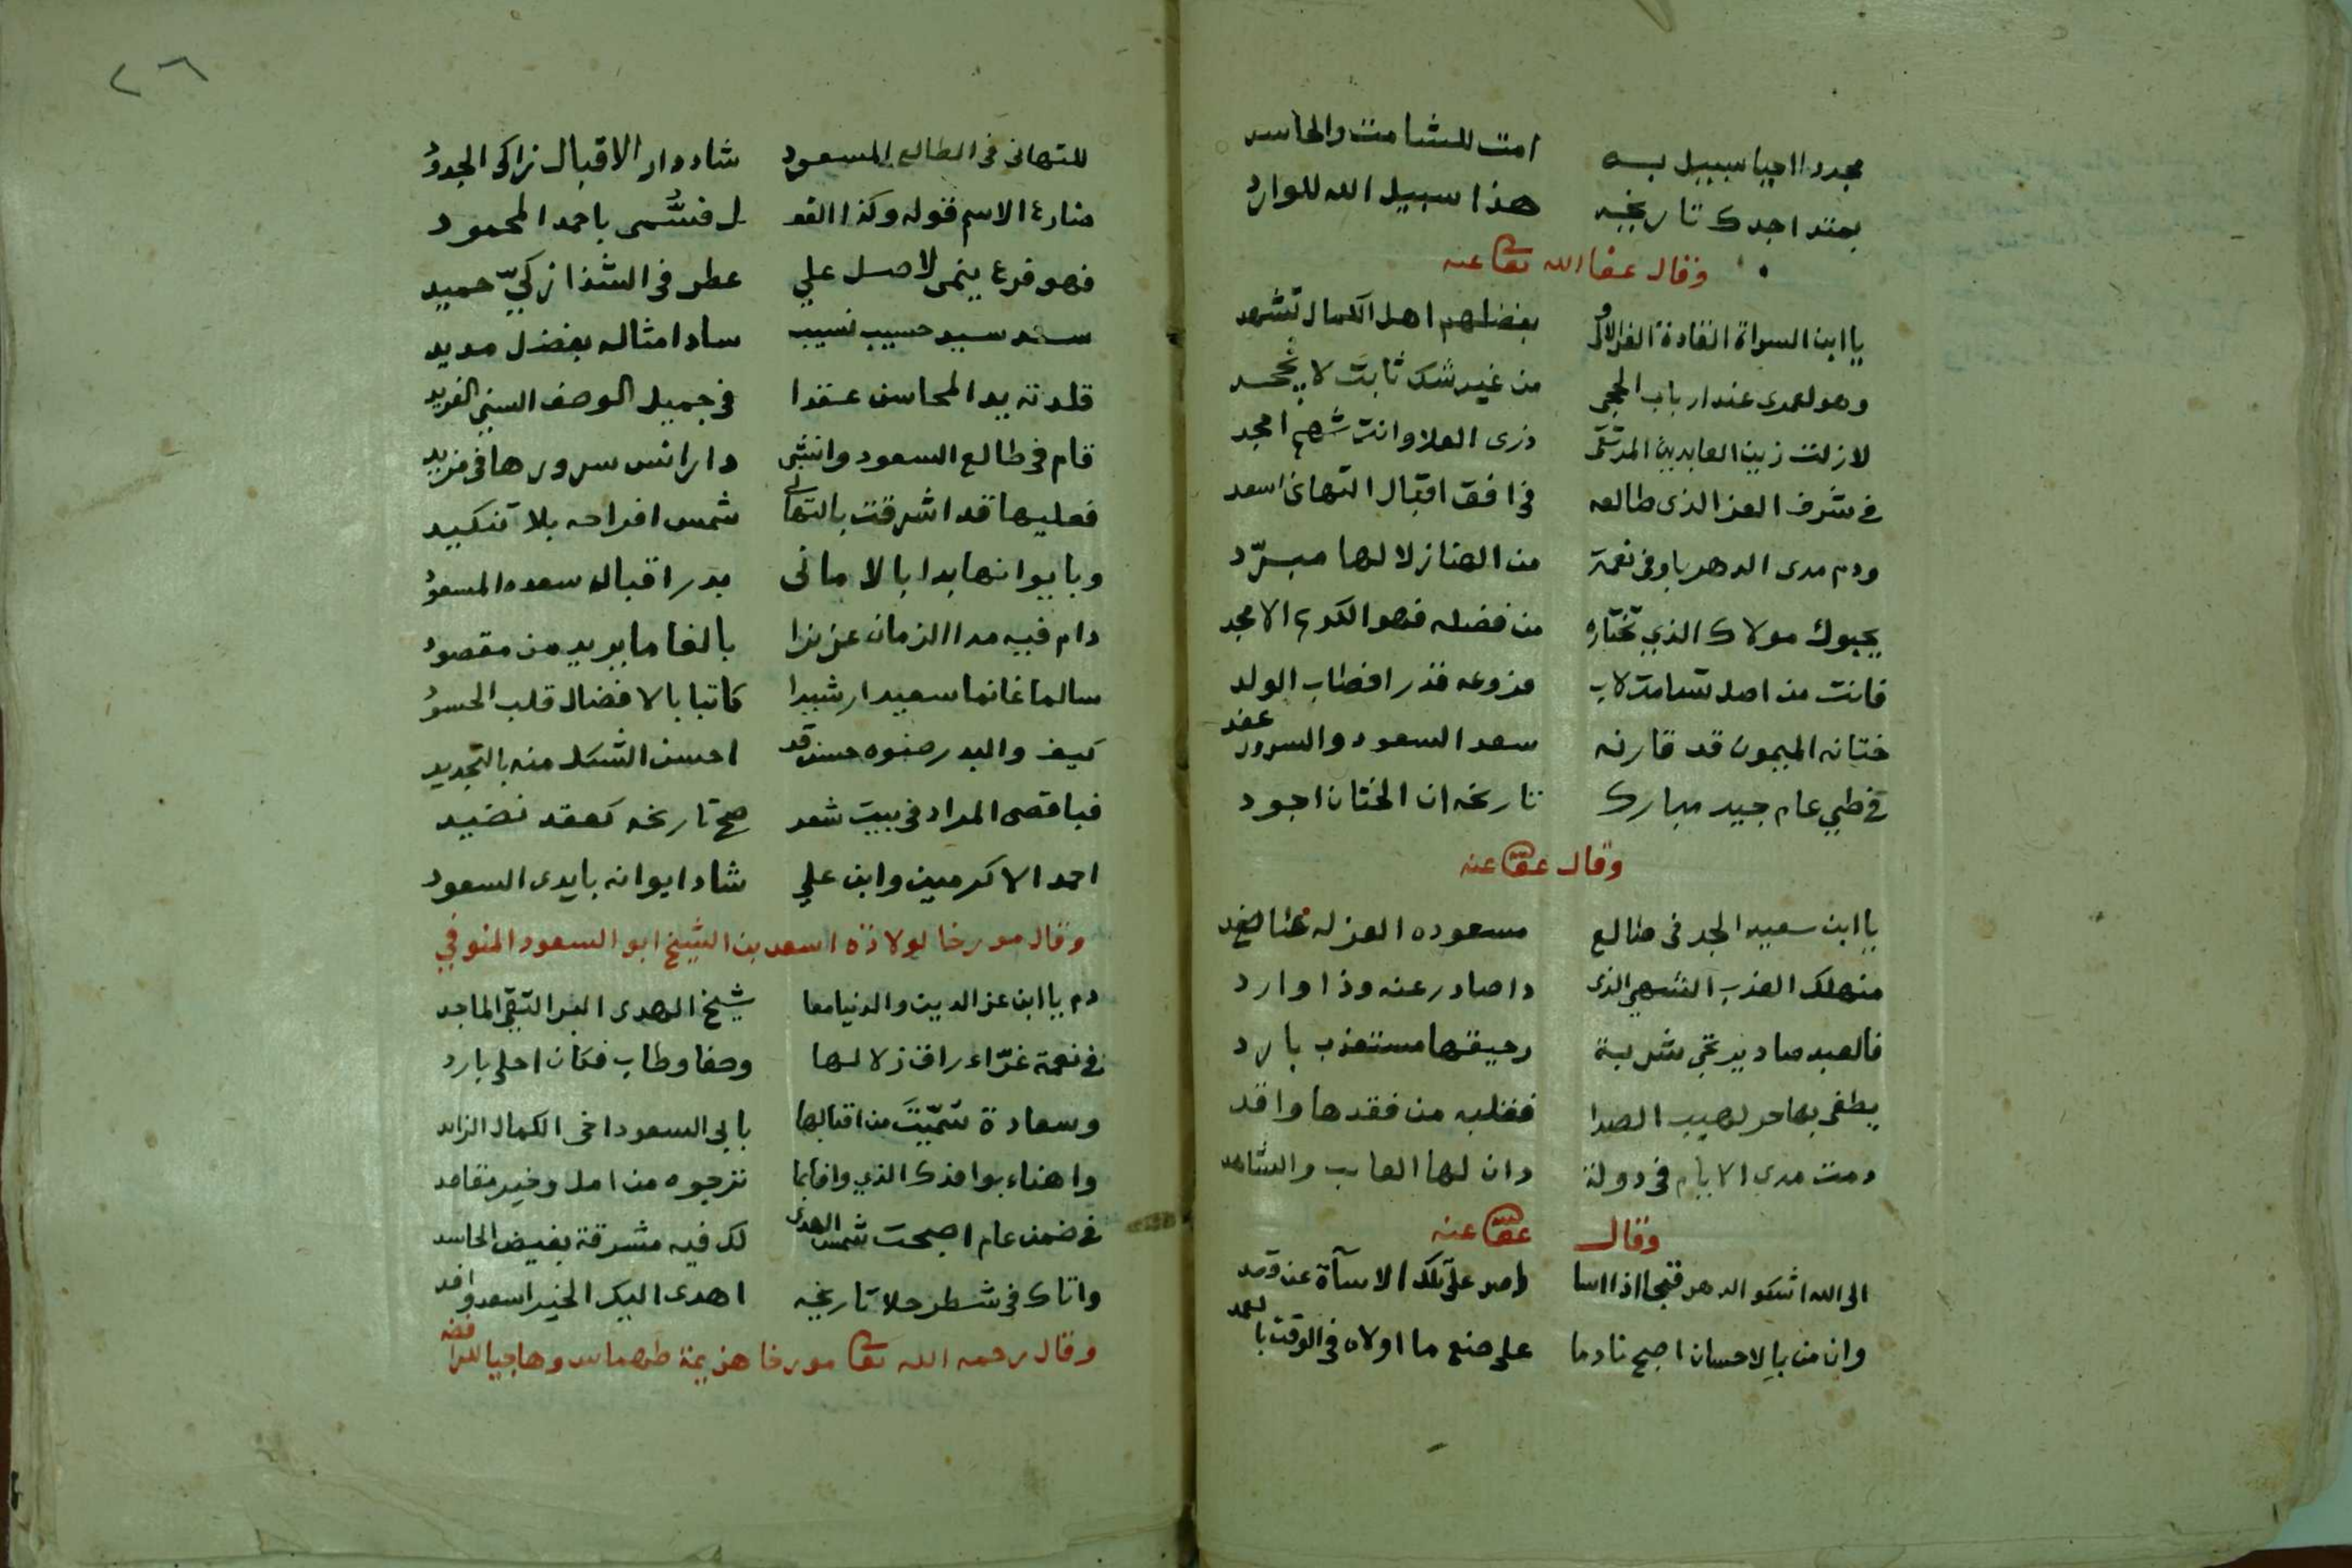 مجددا احيا سبيل به امت للشامت والحاسد
بمتد اجدك تاريخه هذا سبيل الله للوارد
وقال عفا الله تعالى عنه
يا ابن السراة القادة الغر الاولى بفضلهم اهل الكمال تشهد
وهو لعمرى عند ارباب الحجى من غير شك ثابت لا يجحد
لا زلت زين العابدين المرتقى ذرى العلا وانت شهم امجد
فى شرف العز الذى طالعه فى افق اقبال التهانى اسعد
ودم مدى الدهر باوفى نعمة من الهنا زلالها مبرّد
يحبوك مولاك الذي تختاره من فضله فهو الكريم الامجد
فانت من اصل تسامت لاب فروعه فذر افطاب الولد
ختانه الميمون قد قارنه سعد السعود والسرور عند
فى طي عام جيد مبارك تاريخه ان الختان اجود
وقال عفى عنه
يا ابن سعيد الجد فى طالع مسعوده العز له
منهلك العذب الشهي الذى ذا صادر عنه وذا وارد
فالعبد صاد يرتجى شربة رحيقها مستعذب بارد
يطفى بها حر لهيب الصدا فقلبه من فقدها واقد
دمت مدى الايام فى دولة دان لها الغايب والشاهد
وقال عفى عنه
الى الله اشكو الدهر قبحا اذا اسا واصر على تلك الاساءة عن قصد
وان من بالاحسان اصبح نادما على صنع ما اولاه فى الوقت بالعمد
٢٦
للتهانى فى الطالع المسعود شاد دار الاقبال زاكى الجدود
ضارع الاسم قوله وكذا الفعـ ـل فسُمّى باحمد المحمود
فهو فرع ينمى لاصل علي عطر فى الشذا زكيّ حميد
سعد سيد حسيب نسيب ساد امثاله بفضل مديد
قلدته يد المحاسن عقدا فى جميل الوصف السني الفريد
قام فى طالع السعود وانشى دار انس سرورها فى مزيد
فعليها قد اشرقت بالتهانى شمس افراحه بلا تنكيد
وبايوانها بدا بالامانى بدر اقبال سعده المسعود
دام فيه مدا الزمان عزيزا بالغا ما يريد من مقصود
سالما غانما سعيدا رشيدا كاتبا بالافضال قلب الحسود
كيف والبدر صنوه حسن قد احسن الشكل منه بالتجديد
فباقصى المراد فى بيت شعر صح تاريخه كعقد نضيد
احمد الاكرمين وابن علي شاد ايوانه بايدى السعود
وقال مورخا لولادة اسعد بن الشيخ ابو السعود المنوفي
دم يا ابن عز الدين والدنيا معا شيخ الهدى البر التقي الماجد
فى نعمة غرّاء راق زلالها وصفا وطاب فكان احلى بارد
وسعادة تمّيتَ من اقبالها بابى السعود اخى الكمال الزايد
واهناء بوافدك الذي وافا بما نترجوه من امل وخير مقاصد
فى ضمن عام اصبحت شمس الهدى لك فيه مشرقة بغيض الحاسد
واتاك فى شطر حلا تاريخه اهدى اليك الخير اسعد وافد
وقال رحمه الله تعالى مورخا هزيمة طهماس وهاجيا للرافضه